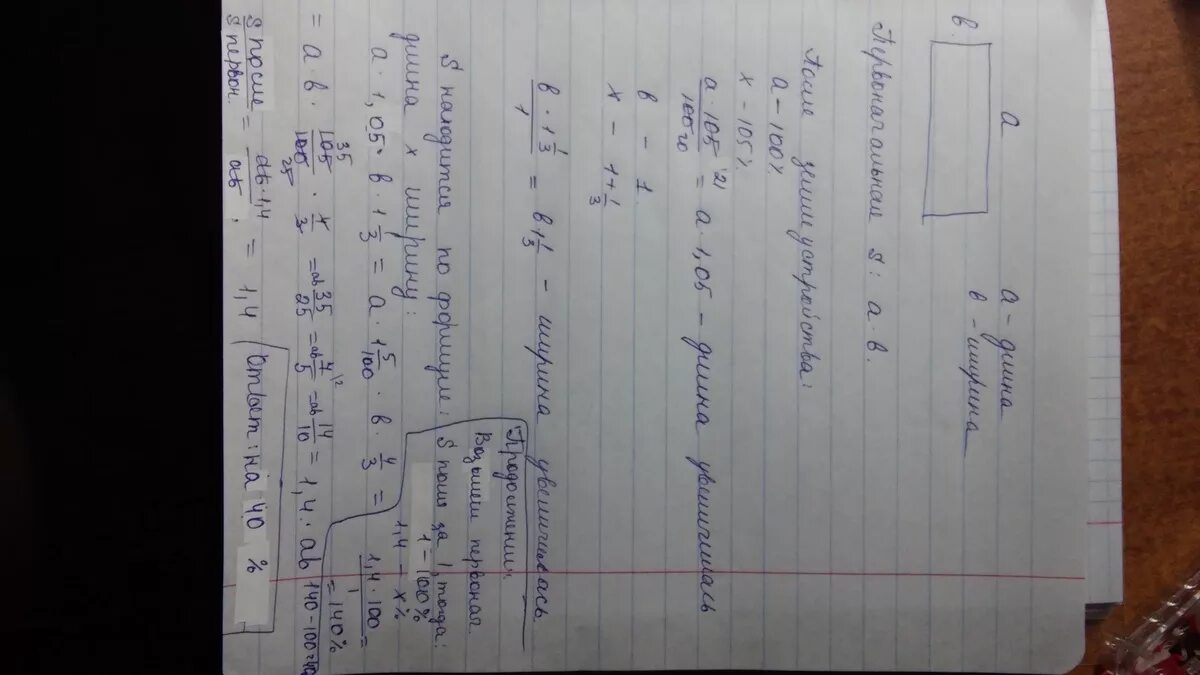 a
в.
a - длина
в - ширина
Первоначальная S: a · в.
После землеустройства:
a - 100%
x - 105%.
a · 105 21 / 100 20 = a · 1,05 - длина увеличилась
в - 1.
x - 1+1/3
в · 1 1/3 / 1 = в 1 1/3 - ширина увеличилась.
S находится по формуле:
длина x ширину:
a · 1,05 · в 1 1/3 = a · 1 5/100 · в · 4/3 =
= a в · 105 35 / 100 25 · 4 / 3 = ab 35/25 = ab 7/5 12 = ab 14/10 = 1,4 · ab
S после / S первон. = ab · 1,4 / ab = 1,4
Продолжение:
Возьмем первонач.
S поля за 1, тогда:
1 - 100%
1,4 - x%
1,4 · 100 / 1 =
= 140%
140 - 100 = 40
Ответ: на 40 %